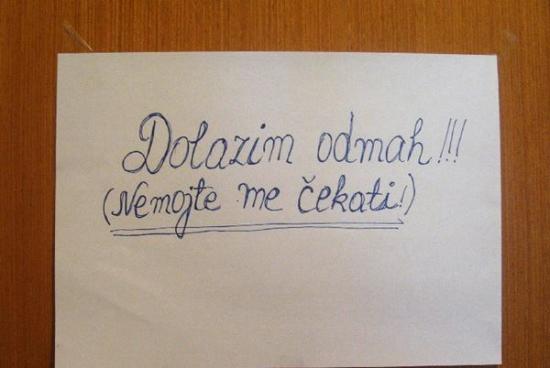 Dolazim odmah!!!
(Nemojte me čekati!)